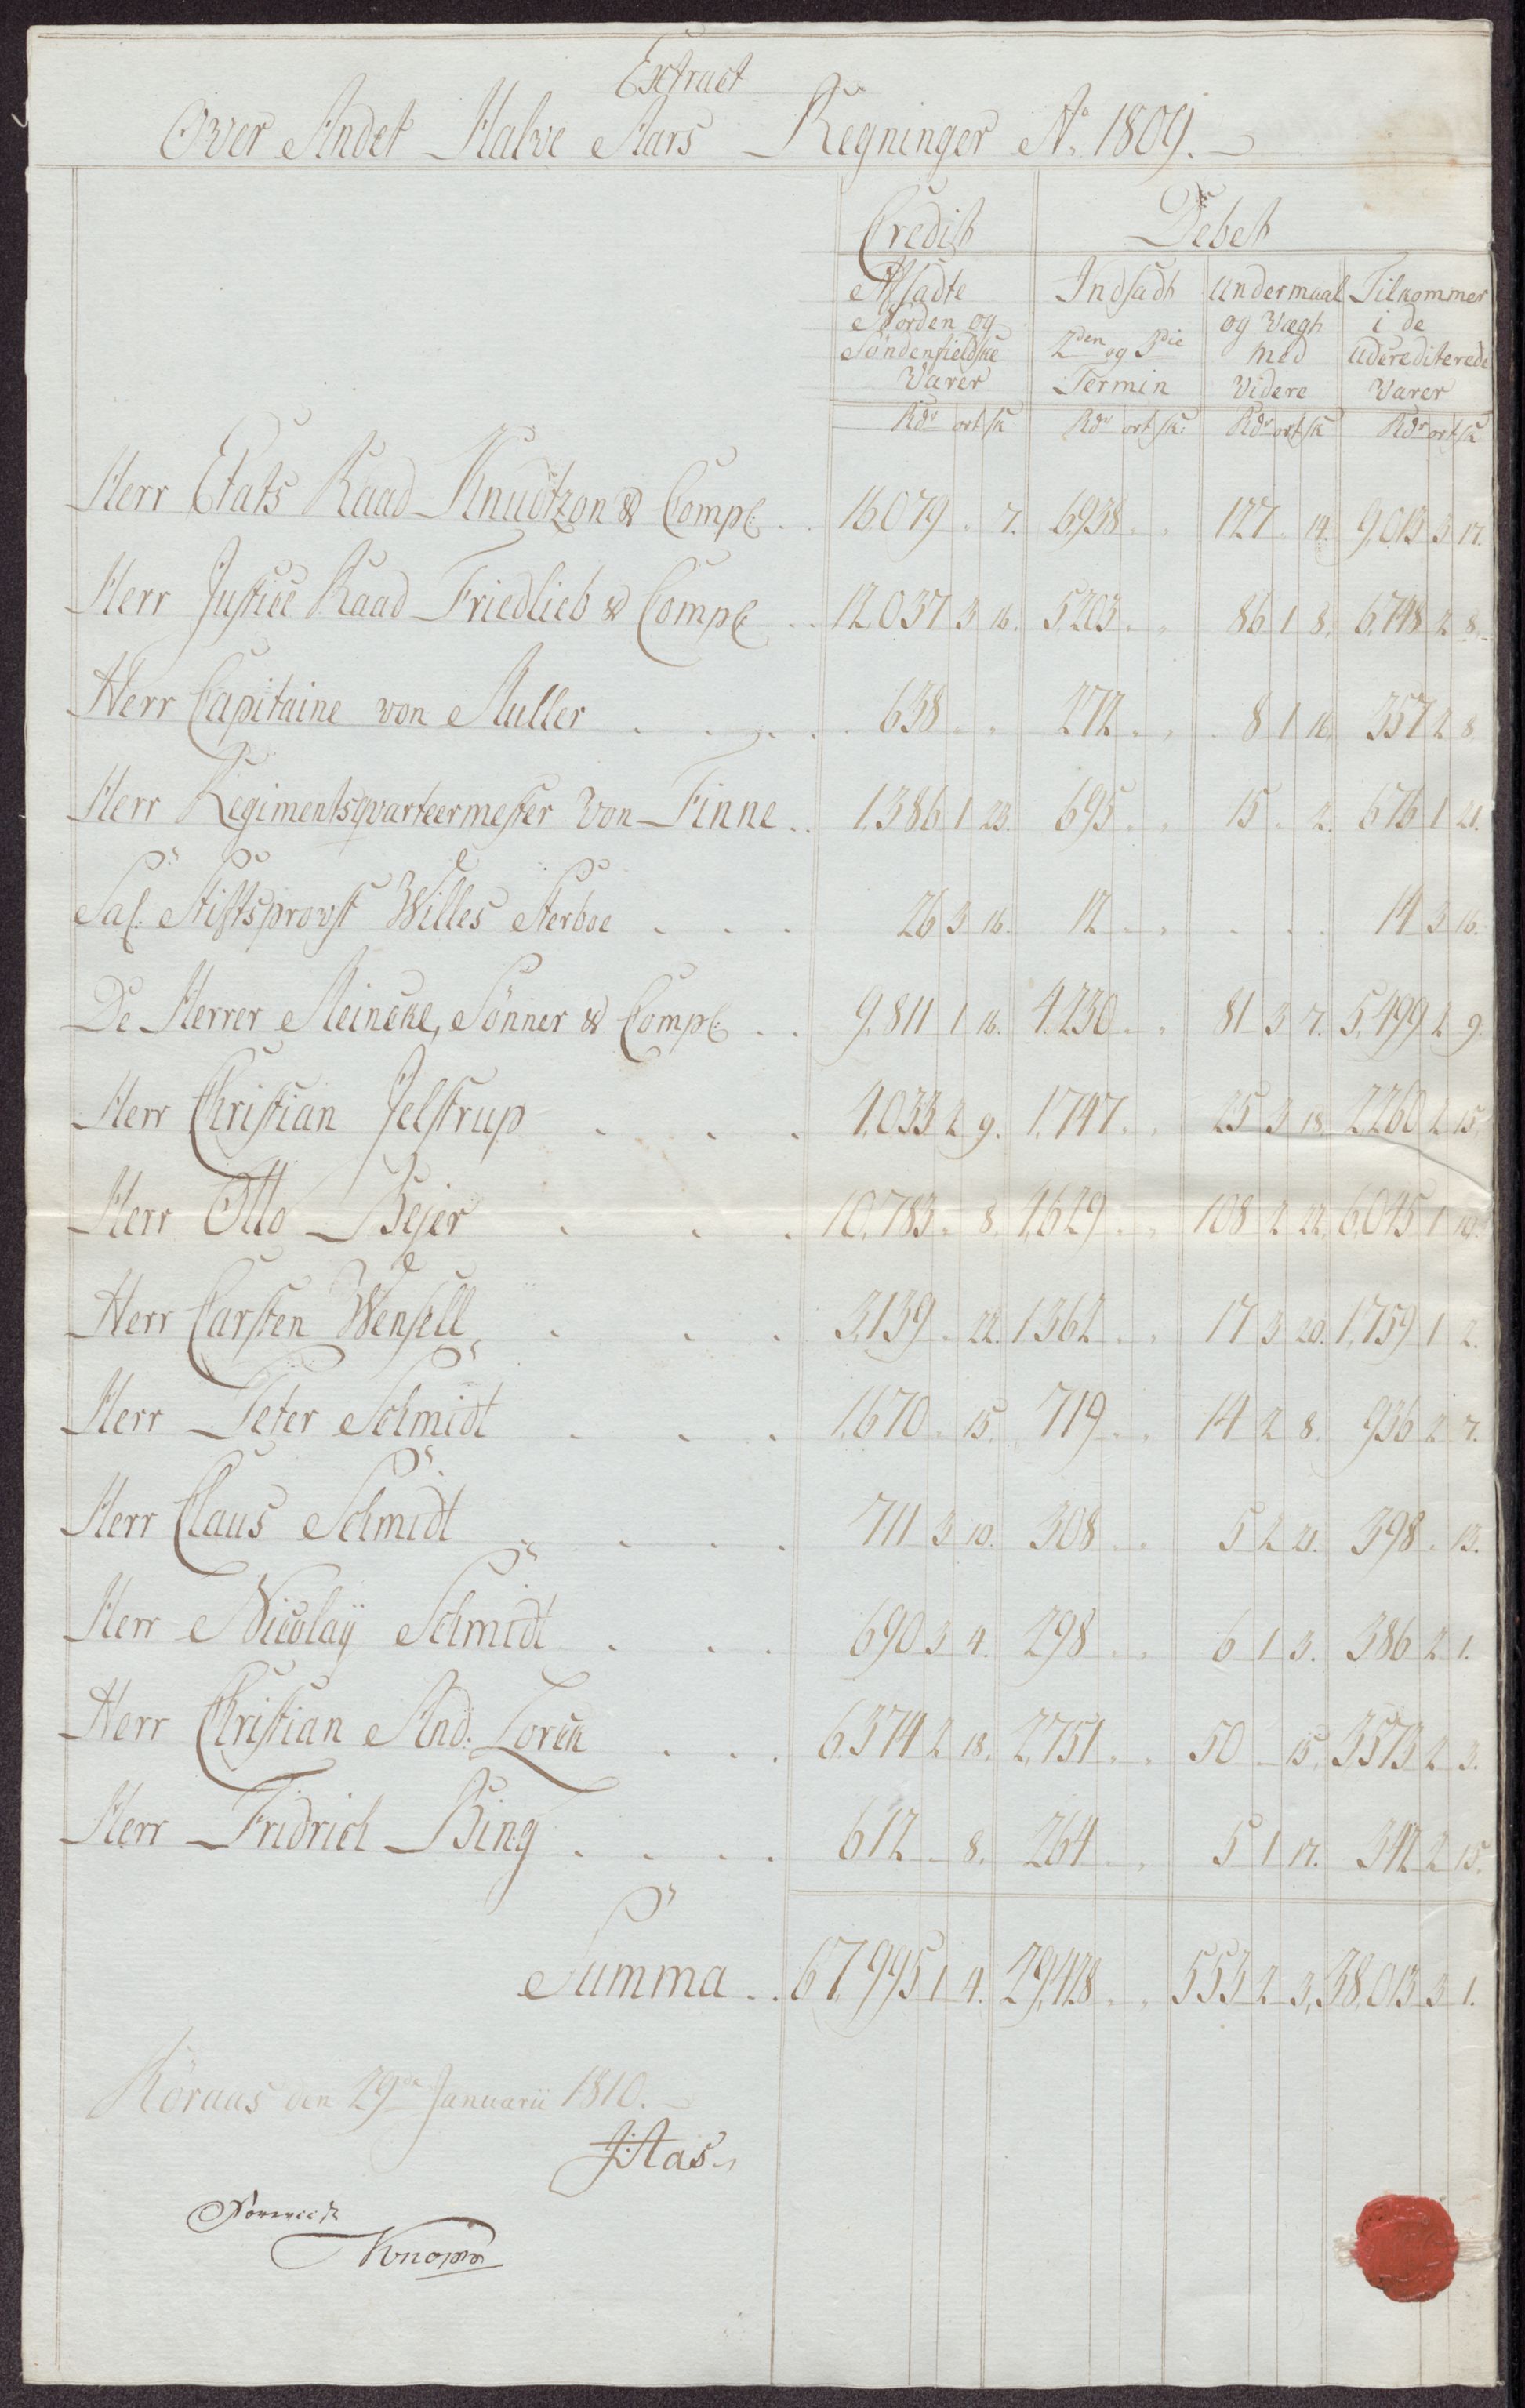 Extract
Over Andet Halve Aars Regninger Aº 1809.
Credit Debet
Afsadte Indsadt Undermaal Tilkommer
Norden og og Vægt i de
Söndenfieldske 2den og 3die med Ucrediterede
Varer Termin Videre Varer
Rdr ort sk Rdr ort sk: Rdr ort sk Rdr ort sk
Herr Etats Raad Knudtzon & Comp: 16,079 " 7. 6,938 " " 127 " 14. 9,013 3 17.
Herr Justice Raad Friedlieb & Comp: 12,037 3 16. 5,203 " " 86 1 8. 6,748 2 8.
Herr Capitaine von Muller 638 " " 272 " " 8 1 16. 357 2 8.
Herr Regimentsqvarteermester von Finne 1,386 1 23. 695 " " 15 " 2. 676 1 21.
Sal: Stiftsprovst Willes Sterboe 26 3 16. 12 " " 14 3 16.
De Herrer Meincke, Sönner & Comp: 9,811 1 16. 4,230 " " 81 3 7. 5,499 2 9.
Herr Christian Jelstrup 4,033 2 9. 1,747 " " 25 3 18. 2,260 2 15.
Herr Otto Bejer 10,783 " 8. 4,629 " " 108 2 22. 6,045 1 10.
Herr Carsten Wensell 3,139 " 22. 1,362 " " 17 3 20. 1,759 1 2.
Herr Peter Schmidt 1,670 " 15. 719 " " 14 2 8. 936 2 7.
Herr Claus Schmidt 711 3 10. 308 " " 5 2 21. 398 " 13.
Herr Nicolaÿ Schmidt 690 3 4. 298 " " 6 1 3. 386 2 1.
Herr Christian And: Lorck 6,374 2 18. 2,751 " " 50 " 15. 3,573 2 3.
Herr Fridrich Bing 612 " 8. 264 " " 5 1 17. 342 2 15.
Summa 67,995 1 4. 29,428 " " 553 2 3. 38,013 3 1.
Röraas den 29de Januarii 1810.
J: Aas
Knoph